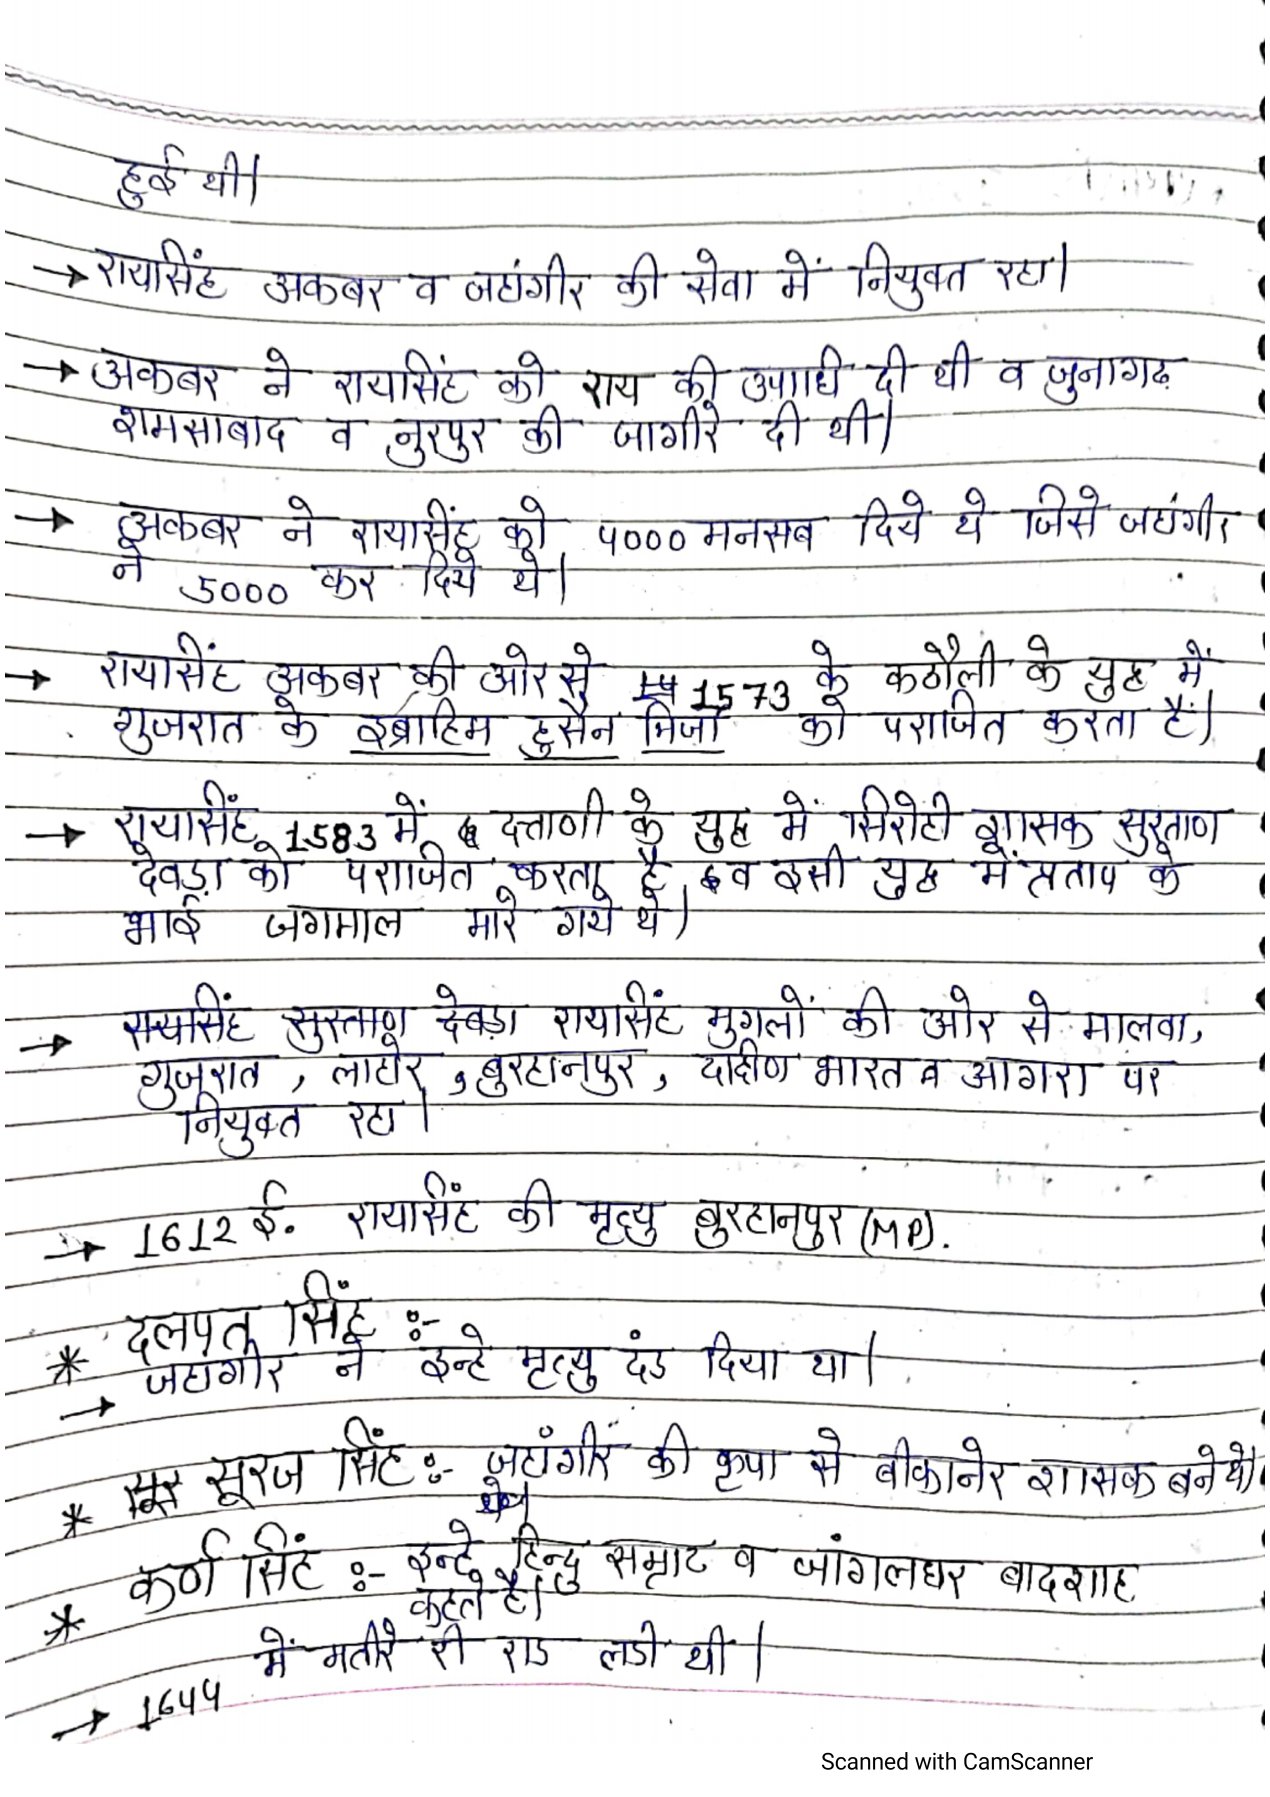 हुई थी।
→ रायसिंह अकबर व जहांगीर की सेवा में नियुक्त रहा।
→ अकबर ने रायसिंह को राय की उपाधि दी थी व जुनागढ
शमसाबाद व नुरपुर की जागीरे दी थी।
→ अकबर ने रायसिंह को 4000 मनसब दिये थे जिसे जहांगीर
ने 5000 कर दिये थे।
→ रायसिंह अकबर की ओर से 1573 के कठौली के युद्ध में
गुजरात के इब्राहिम हुसैन मिर्जा को पराजित करता हैं।
→ रायसिंह 1583 में दत्ताणी के युद्ध में सिरोही शासक सुरताण
देवड़ा को पराजित करता है व इसी युद्ध में प्रताप के
भाई जगमाल मारे गये थे।
→ रायसिंह सुरताण देवड़ा रायसिंह मुगलों की ओर से मालवा,
गुजरात , लाहोर , बुरहानपुर , दक्षिण भारत व आगरा पर
नियुक्त रहा।
→ 1612 ई. रायसिंह की मृत्यु बुरहानपुर (MP).
* दलपत सिंह :-
→ जहागीर ने इन्हे मृत्यु दंड दिया था।
* सूरज सिंह :- जहांगीर की कृपा से बीकानेर शासक बने थे।
* कर्ण सिंह :- इन्हे हिन्दु सम्राट व जांगलधर बादशाह
कहते है।
→ 1644 में मतीरे री राड लडी थी।
Scanned with CamScanner